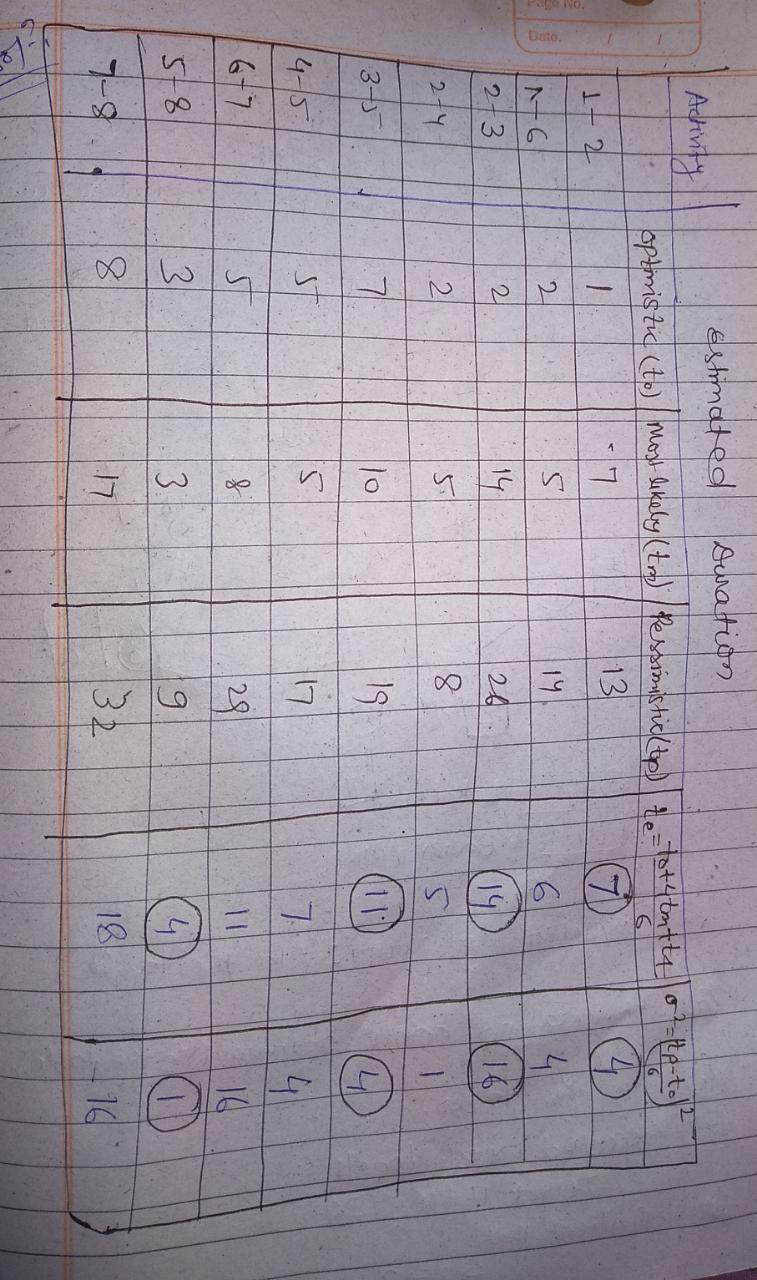 Estimated Duration
Activity
optimistic (to) Most likely (tm) Pessimistic (tp) te = to+4tm+t1/6 σ² = (tp-to/6)²
1-2 1 7 13 7 4
1-6 2 5 14 6 4
2-3 2 14 26 14 16
2-4 2 5 8 5 1
3-5 7 10 19 11 4
4-5 5 5 17 7 4
6-7 5 8 29 11 16
5-8 3 3 9 4 1
7-8 8 17 32 18 16
Page No.
Date.